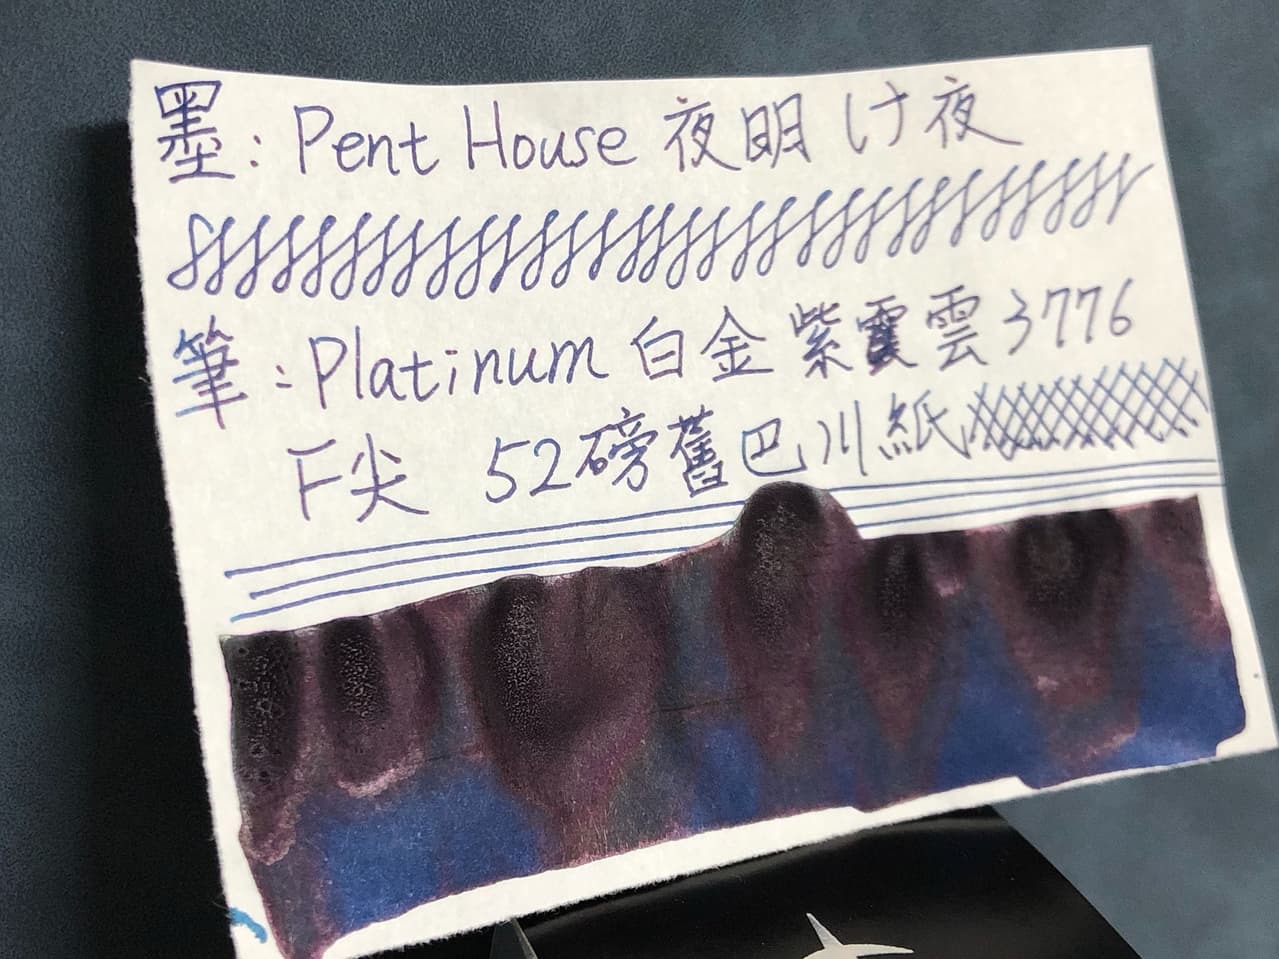 墨: Pent House 夜明け夜
筆: Platinum 白金 紫霞雲 3776
F尖 52磅舊巴川紙